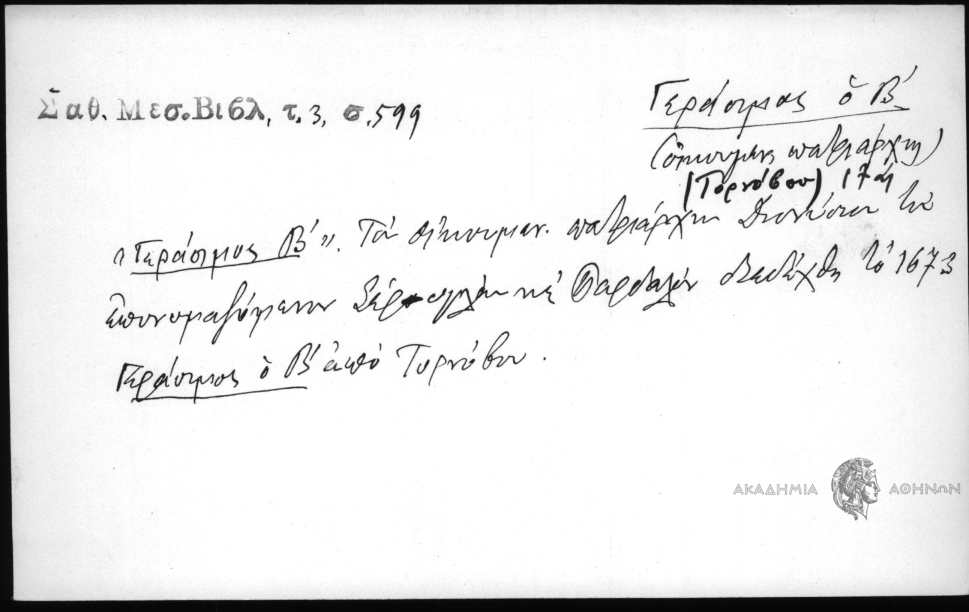 Σαθ. Μεσ. Βιβλ, τ. 3, σ. 599
Γεράσιμος ὁ Β´
(οἰκουμεν. πατριάρχης)
(Τορνόβου) 17
«Γεράσιμος Β´». Τὸν οἰκουμεν. πατριάρχην Διονύσιον τὸν
ἐπονομαζόμενον καὶ διεδέχθη τὸ 1673
Γεράσιμος ὁ Β´ ἀπὸ Τορνόβου.
ΑΚΑΔΗΜΙΑ ΑΘΗΝΩΝ